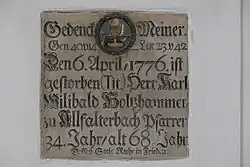 Gedenck Meiner.
Gen 40. v 14 Luc 23 v 42
Den 6. April, 1776. ist
gestorben (Tit.) Herr Karl
Wilibald Holzhammer
zu Allfalterbach Pfarrer
34. Jahr, alt 68. Jahr
Seele Ruhe in Frieden.